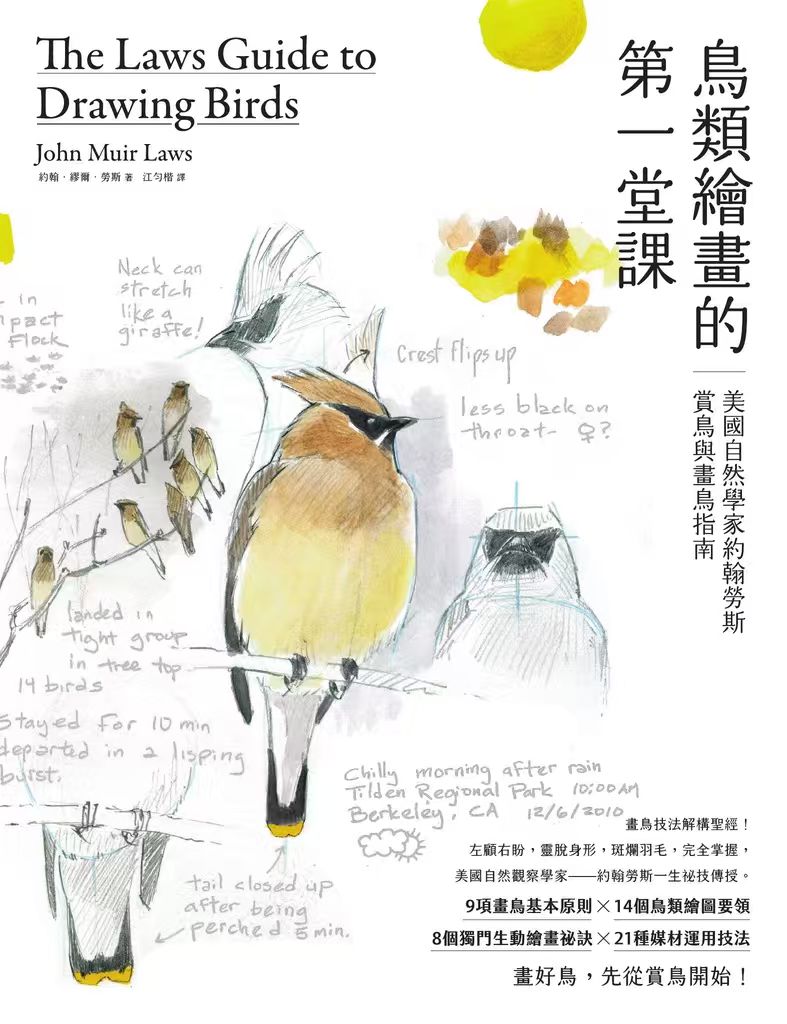 The Laws Guide to
Drawing Birds
John Muir Laws
約翰．繆爾．勞斯 著 江勻楷 譯
鳥類繪畫的
第一堂課
美國自然學家約翰勞斯
賞鳥與畫鳥指南
Neck can
stretch
like a
giraffe!
in
pact
Flock
Crest flips up
less black on
throat- ♀?
landed in
tight group
in tree top
14 birds
Stayed for 10 min
departed in a lisping
burst.
Chilly morning after rain
Tilden Regional Park 10:00AM
Berkeley, CA 12/6/2010
tail closed up
after being
perched 5 min.
畫鳥技法解構聖經！
左顧右盼，靈脫身形，斑斕羽毛，完全掌握，
美國自然觀察學家——約翰勞斯一生祕技傳授。
9項畫鳥基本原則×14個鳥類繪圖要領
8個獨門生動繪畫祕訣×21種媒材運用技法
畫好鳥，先從賞鳥開始！